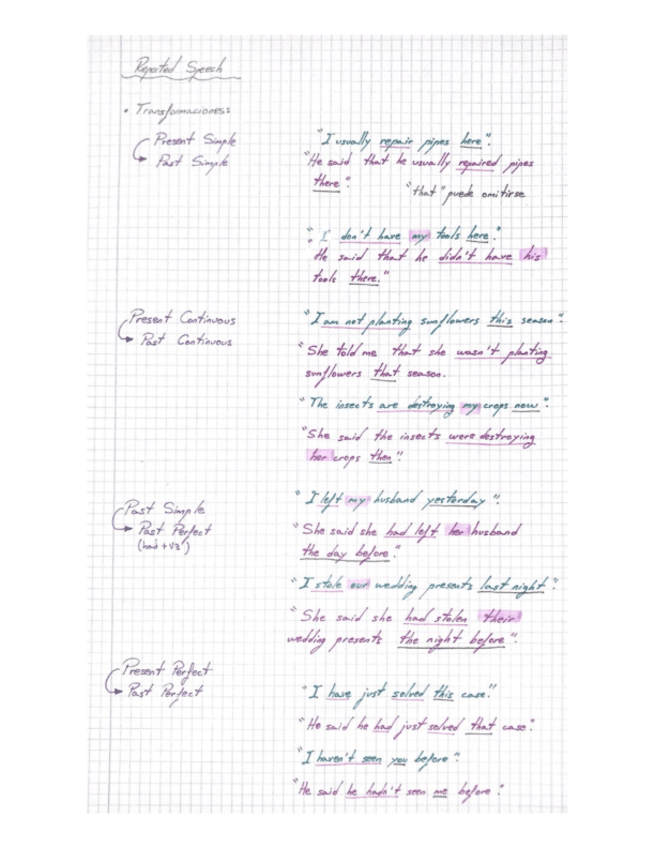 Reported Speech
• Transformaciones
Present Simple
Past Simple
"I usually repair pipes here".
"He said that he usually repaired pipes
there".
"that" puede omitirse
"I don't have my tools here."
He said that he didn't have his
tools there."
Present Continuous
Past Continuous
"I am not planting sunflowers this season".
"She told me that she wasn't planting
sunflowers that season.
"The insects are destroying my crops now".
"She said the insects were destroying
her crops then".
Past Simple
Past Perfect
(had + V3)
"I left my husband yesterday".
"She said she had left her husband
the day before".
"I stole our wedding presents last night".
"She said she had stolen their
wedding presents the night before".
Present Perfect
Past Perfect
"I have just solved this case."
"He said he had just solved that case".
"I haven't seen you before".
"He said he hadn't seen me before".